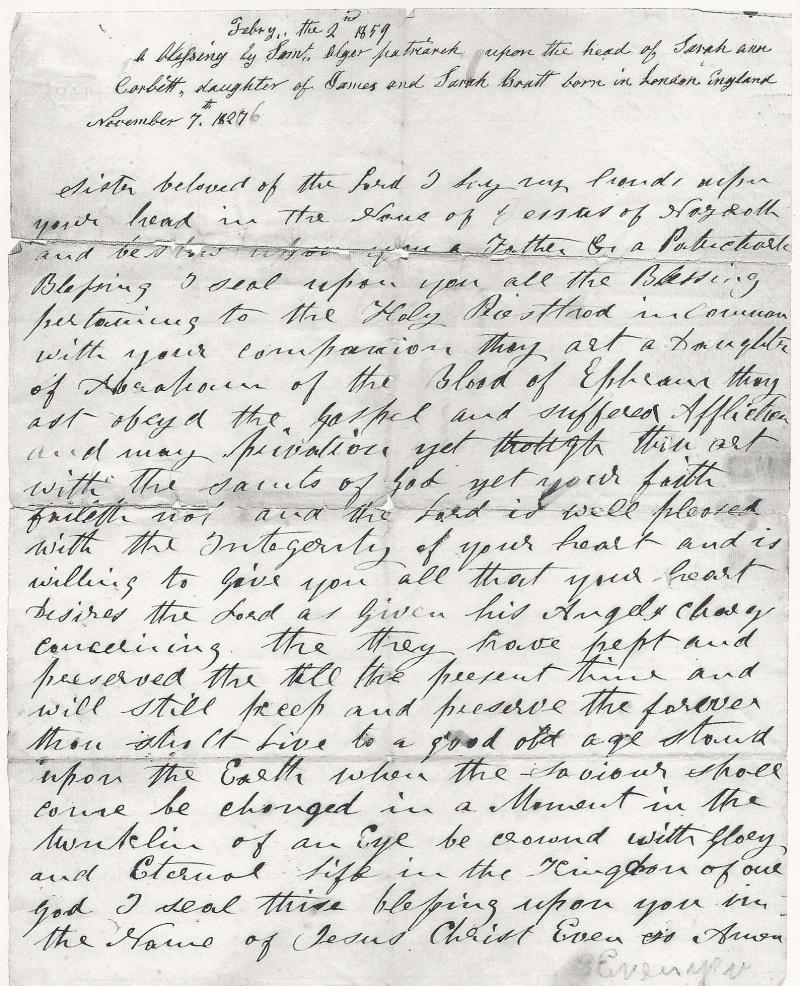 Febry.. the 2nd 1859
A blessing by Saml. Alger patriarch upon the head of Sarah ann
Corbitt, daughter of James and Sarah Bratt born in London England
November 7.th 1827 6
Sister beloved of the Lord I Lay my hands upon
your head in the Name of Jessus of Nazeoth
and bestow upon you a Father & a Patrichark
Blessing I seal upon you all the Blessing
pertaining to the Holy Piesthod in Common
with your companion thoy art a Daughter
of Abraham of the Blood of Ephraim thoy
ast obeyd the Gospel and suffered Affliction
and many privation yet though thou art
with the saints of God yet your faith
faileth not and the Lord is well pleased
with the Integerity of your heart and is
willing to Give you all that your heart
Desires the Lord as Given his Angels charg
concerining the they have kept and
preserved the till the present time and
will still keep and preserve the forever
thou shalt Live to a good old age stand
upon the Earth when the Saviour shall
come be changed in a Moment in the
twinklin of an Eye be crownd with Gloey
and Eternal life in the Kingdom of our
god I seal thise blessing upon you in
the Name of Jesus Christ Even so Amen